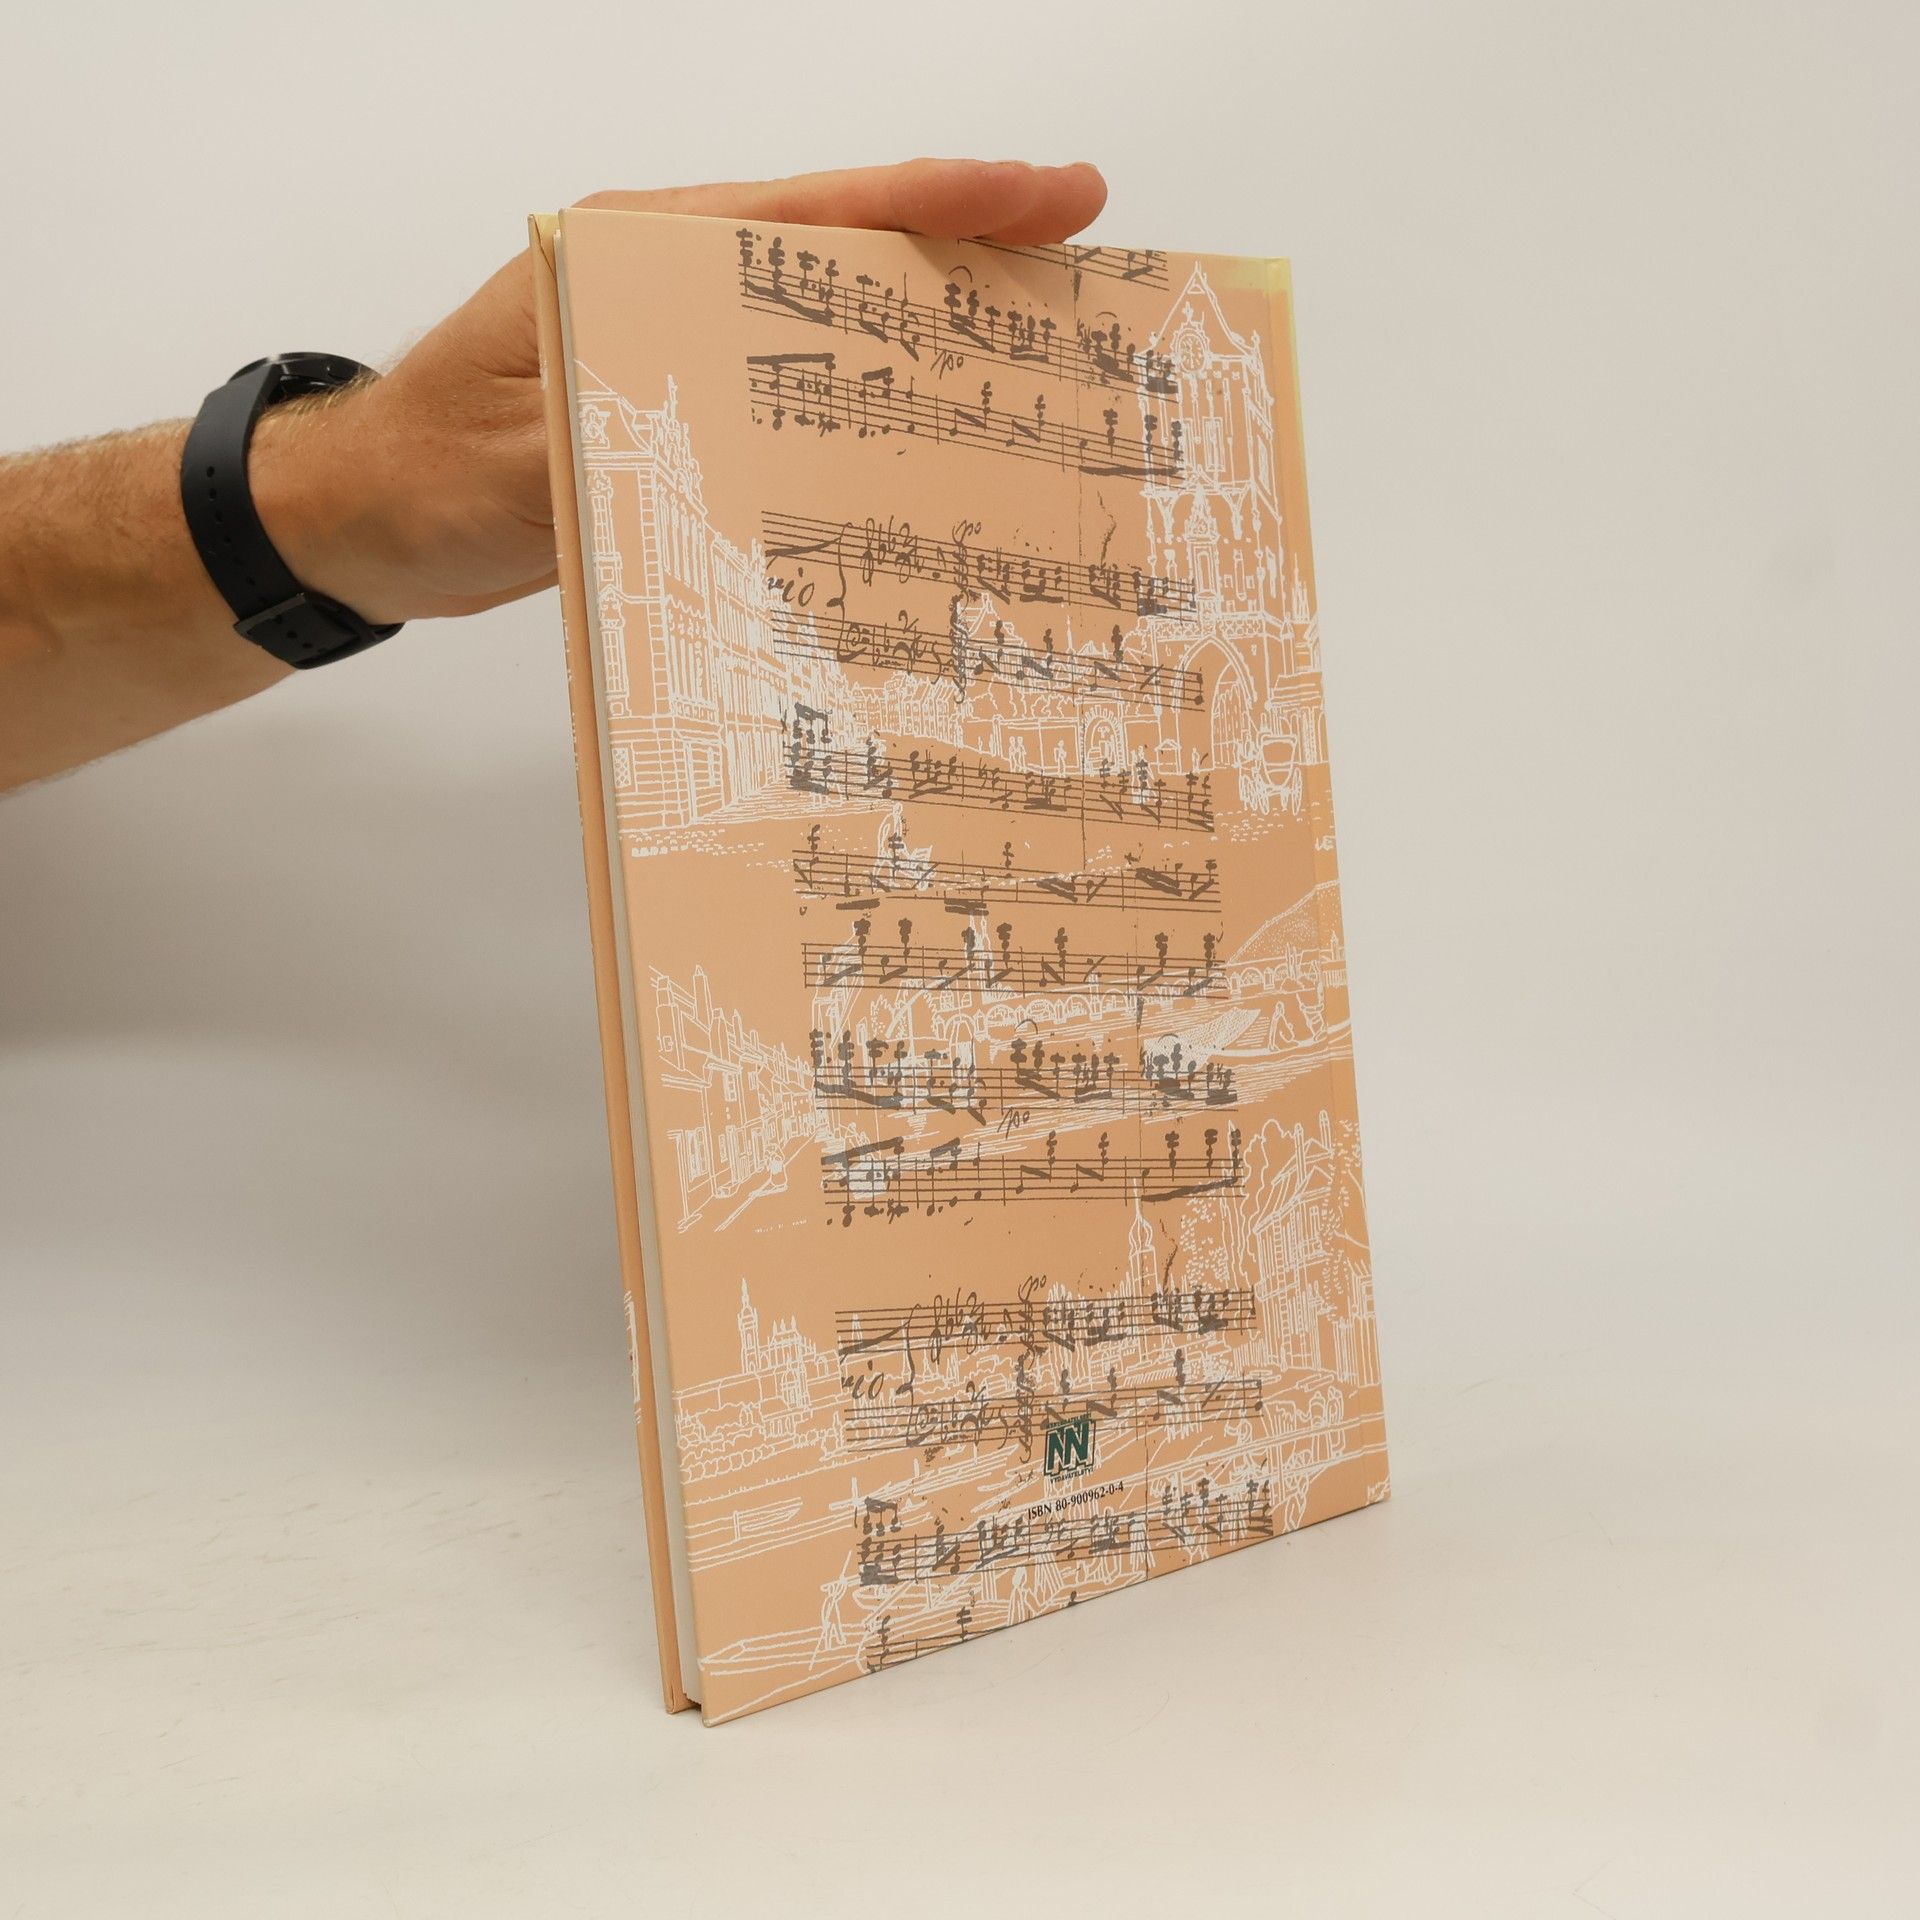 po
po
io
po
po
io
NN
VYDAVATELSTVÍ
ISBN 80-900962-0-4